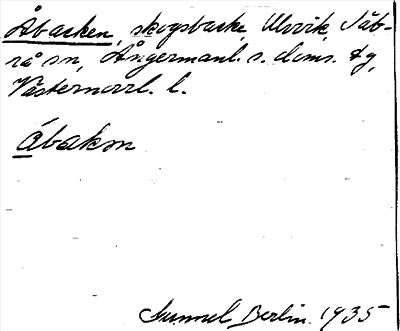 Åbacken, skogsbacke, Ulvvik, Säb-
rå sn, Ångermanl. s. doms. tg,
Västernorrl. l.
åbakən
Gunnel Berlin. 1935